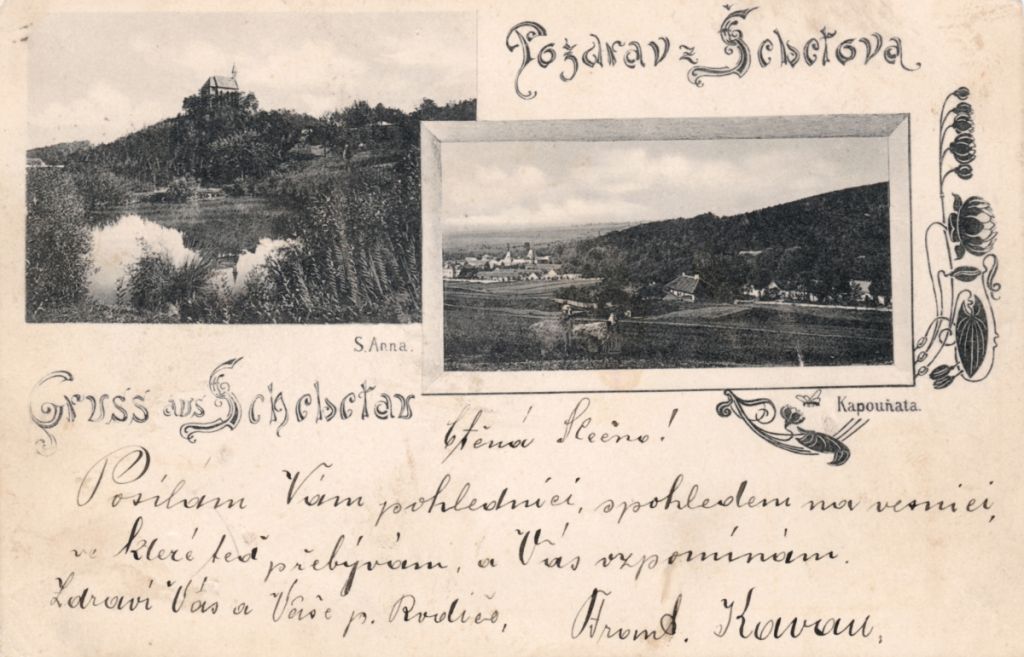 Pozdrav z Šebetova
S. Anna.
Gruss aus Schebetau
Kapouňata.
Ctěná Slečno!
Posílám Vám pohlednici, s pohledem na vesnici,
ve které teď přebývám, a Vás vzpomínám.
Zdraví Vás a Vaše p. Rodiče,
Frant. Kavan,